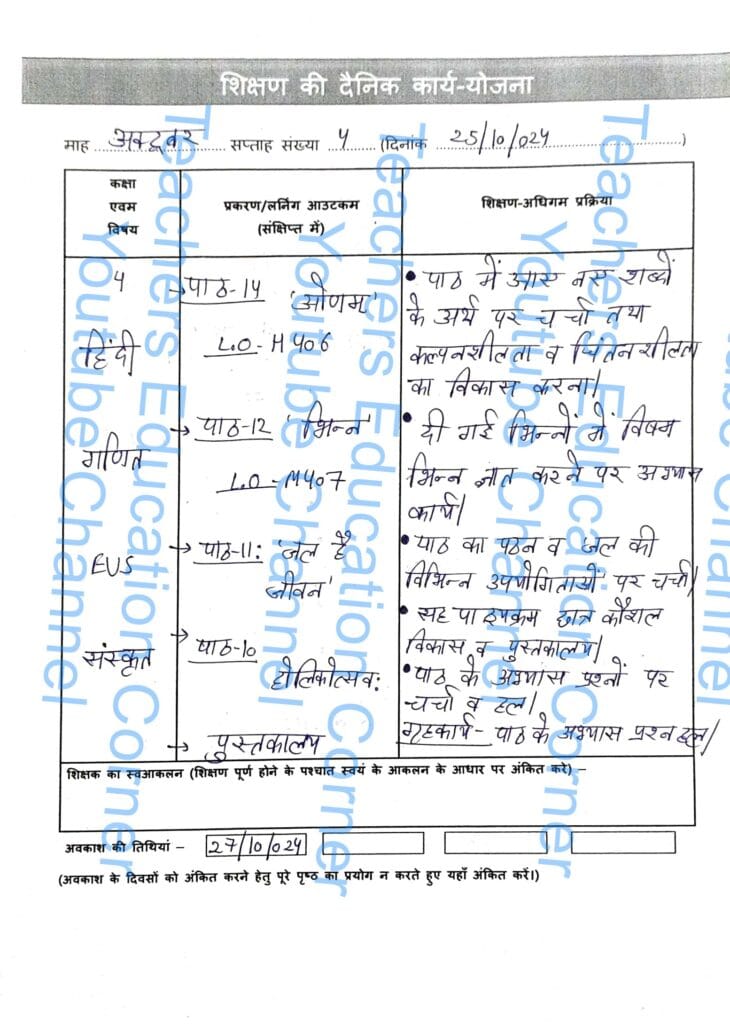 शिक्षण की दैनिक कार्य-योजना
माह अक्टूबर सप्ताह संख्या 4 (दिनांक 25/10/024)
कक्षा एवम विषय
प्रकरण/लर्निंग आउटकम (संक्षिप्त में)
शिक्षण-अधिगम प्रक्रिया
4
→ पाठ-14 'ओणम'
• पाठ में आए नए शब्दों
के अर्थ पर चर्चा तथा
हिंदी
L.O-H406
कल्पनशीलता व चिंतनशीलता
का विकास करना।
गणित
→ पाठ-12 'भिन्न'
• दी गई भिन्नों में विषम
L.O-M407
भिन्न ज्ञात करने पर अभ्यास
कार्य।
EVS
→ पाठ-11: 'जल है
जीवन'
• पाठ का पठन व 'जल की
विभिन्न उपयोगिताओं' पर चर्चा।
• सह पा उपक्रम छात्र कौशल
विकास व पुस्तकालय।
संस्कृत
→ पाठ-10
होलिकोत्सव:
• पाठ के अभ्यास प्रश्नों पर
चर्चा व हल।
→ पुस्तकालय
गृहकार्य- पाठ के अभ्यास प्रश्न हल।
शिक्षक का स्वआकलन (शिक्षण पूर्ण होने के पश्चात स्वयं के आकलन के आधार पर अंकित करे) –
अवकाश की तिथियां – 27/10/024
(अवकाश के दिवसों को अंकित करने हेतु पूरे पृष्ठ का प्रयोग न करते हुए यहाँ अंकित करें।)
Teachers Education Corner
Youtube Channel
Teachers Education Corner
Youtube Channel
Teachers Education Corner
Youtube Channel